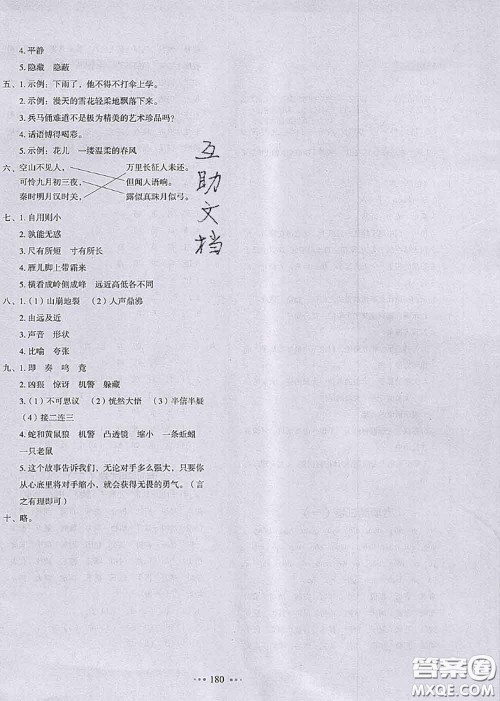 4. 平静
5. 隐藏 隐蔽
五、1. 示例：下雨了，他不得不打伞上学。
2. 示例：漫天的雪花轻柔地飘落下来。
3. 兵马俑难道不是极为精美的艺术珍品吗？
4. 话语博得喝彩。
5. 示例：花儿 一缕温柔的春风
六、空山不见人， 万里长征人未还。
可怜九月初三夜， 但闻人语响。
秦时明月汉时关， 露似真珠月似弓。
七、1. 自用则小
2. 孰能无惑
3. 尺有所短 寸有所长
4. 雁儿脚上带霜来
5. 横看成岭侧成峰 远近高低各不同
八、1.（1）山崩地裂 （2）人声鼎沸
2. 由远及近
3. 声音 形状
4. 比喻 夸张
九、1. 即 奏 鸣 竟
2. 凶狠 惊讶 机警 躲藏
3.（1）不可思议 （2）恍然大悟 （3）半信半疑
（4）接二连三
4. 蛇和黄鼠狼 机警 凸透镜 缩小 一条蚯蚓
一只老鼠
5. 这个故事告诉我们，无论对手多么强大，只要你
从心底里将对手缩小，就会获得无畏的勇气。（言
之有理即可）
十、略。
互助文档
180
答案圈
MXQE.COM